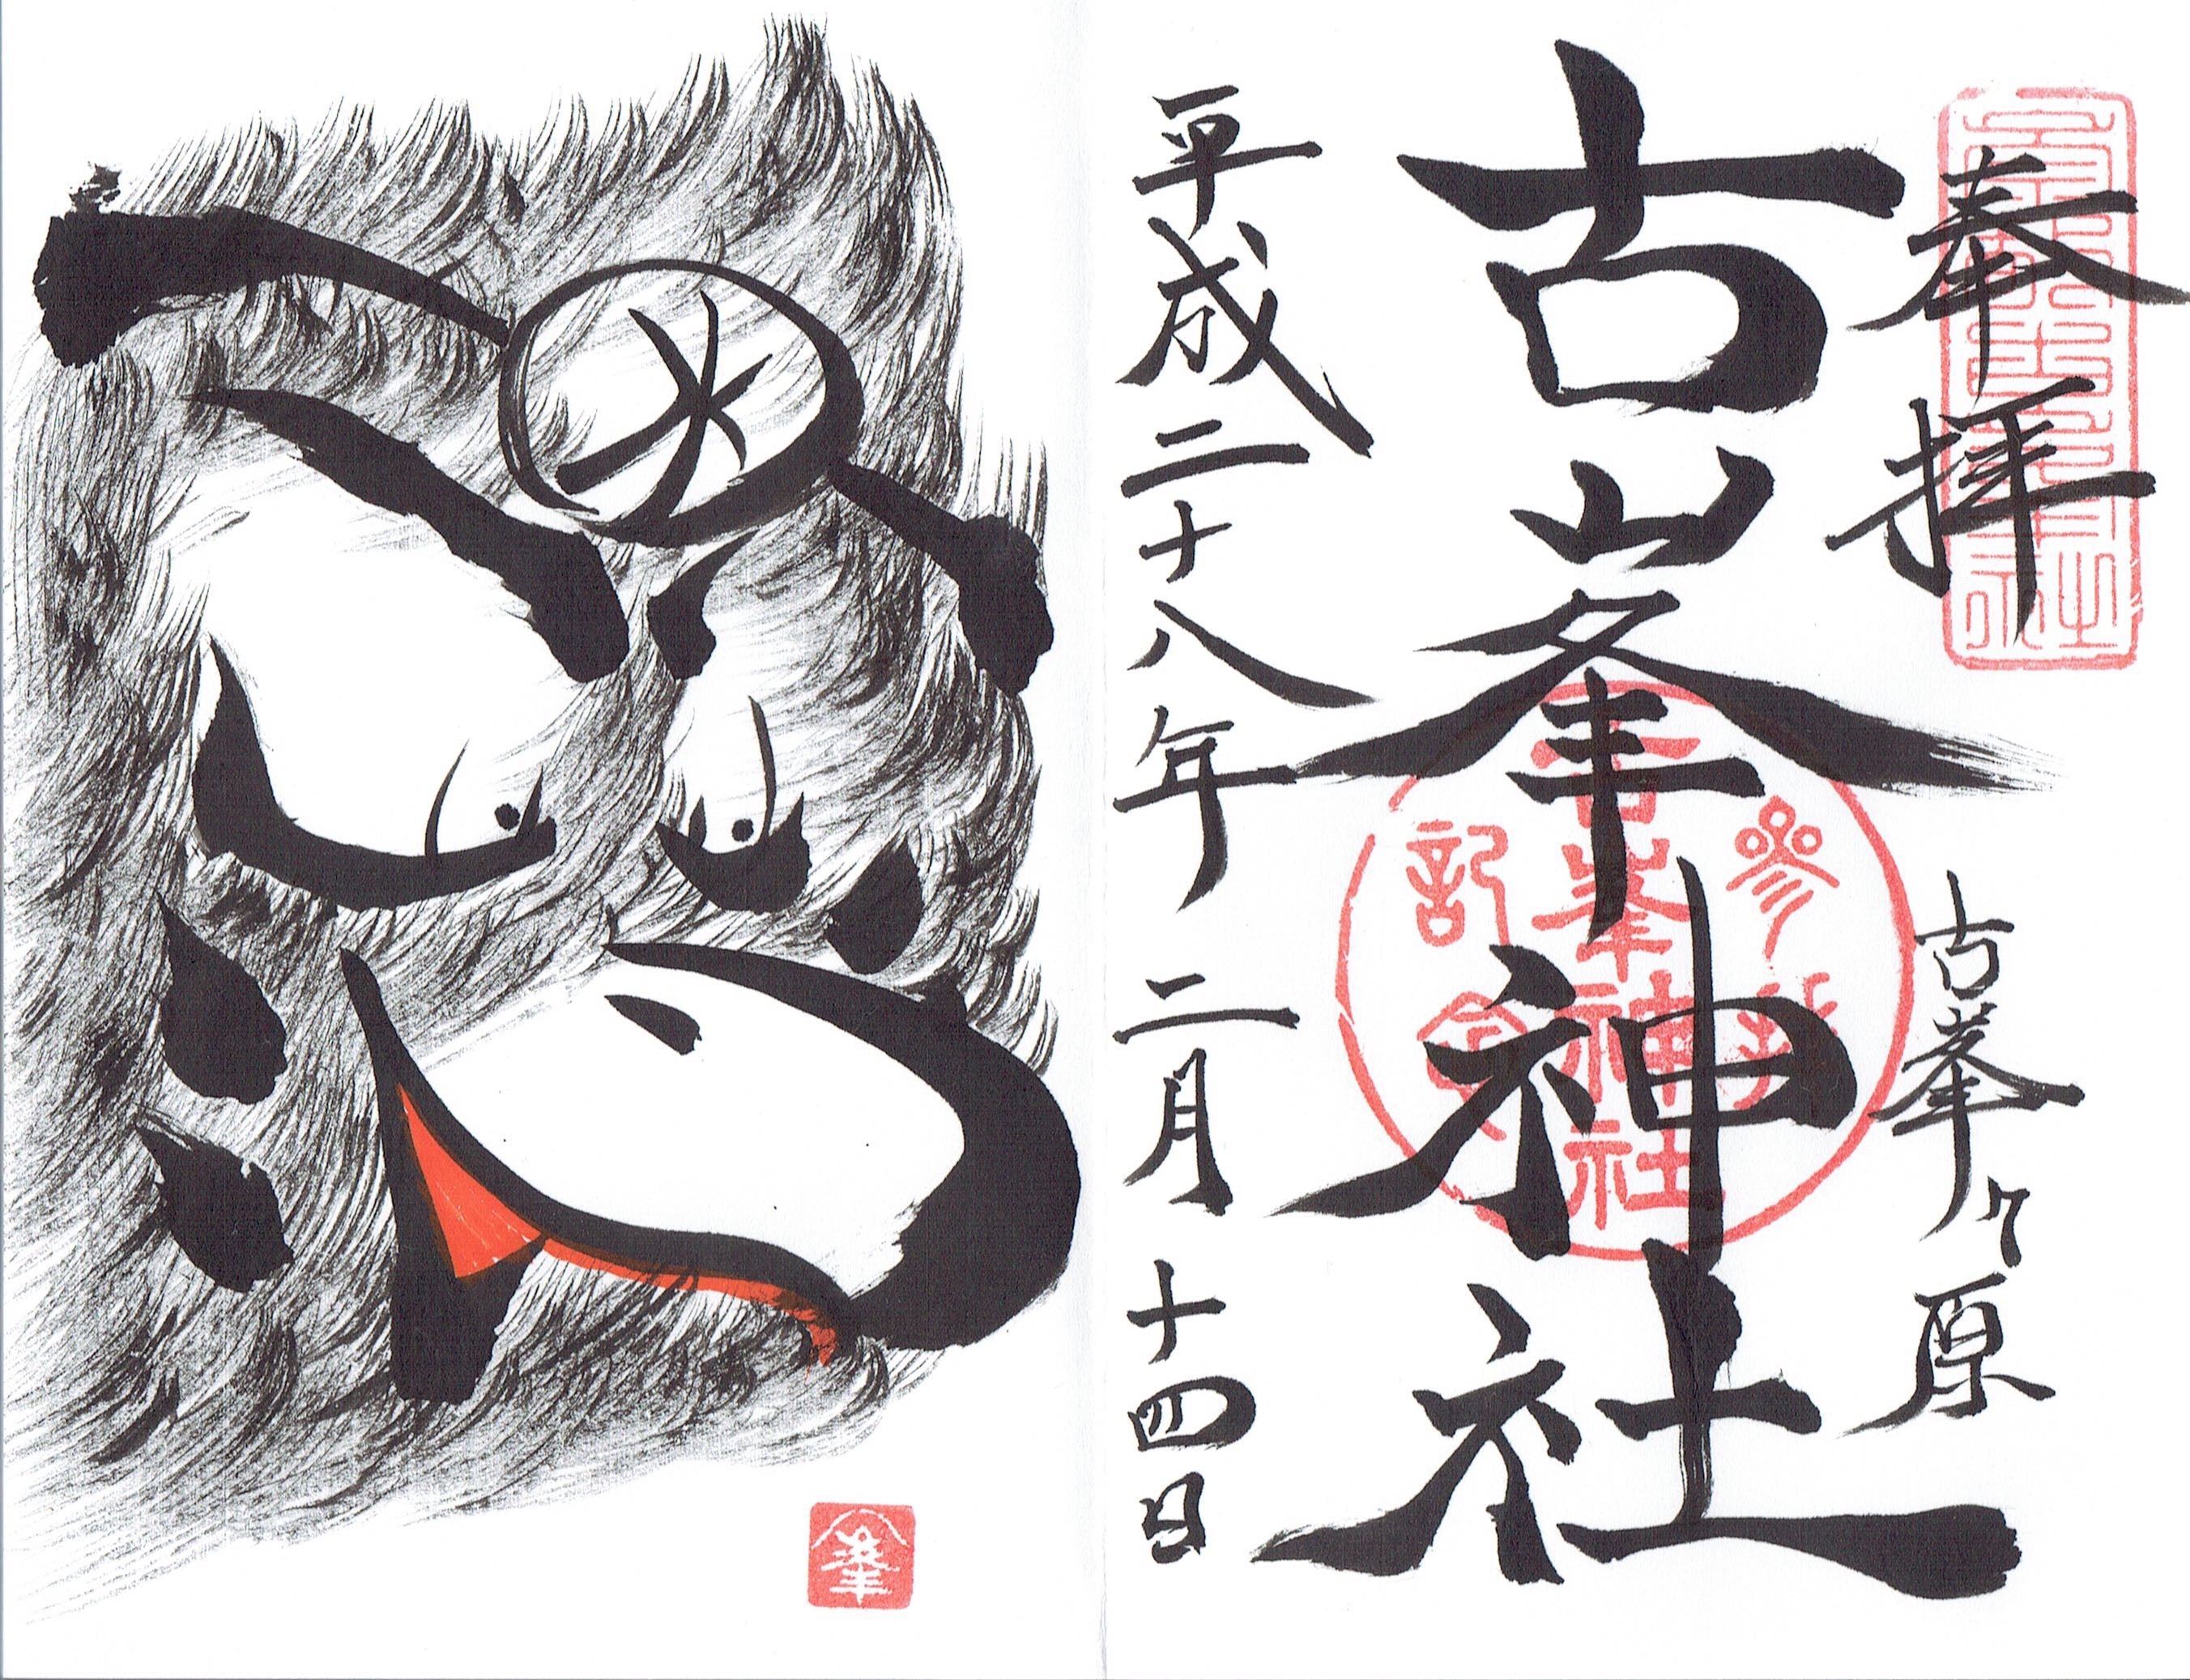 奉拝
古峯ヶ原
古峯神社
参拝記念
古峯神社
平成二十八年 二月 十四日